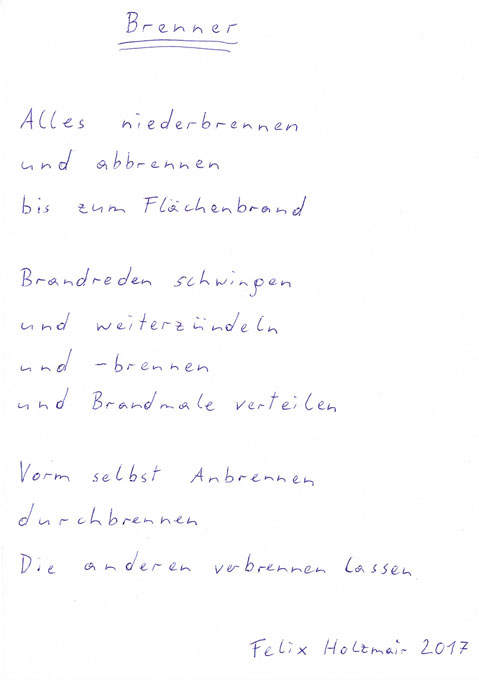 Brenner
Alles niederbrennen
und abbrennen
bis zum Flächenbrand
Brandreden schwingen
und weiterzündeln
und -brennen
und Brandmale verteilen
Vorm selbst Anbrennen
durchbrennen
Die anderen verbrennen lassen
Felix Holzmair 2017